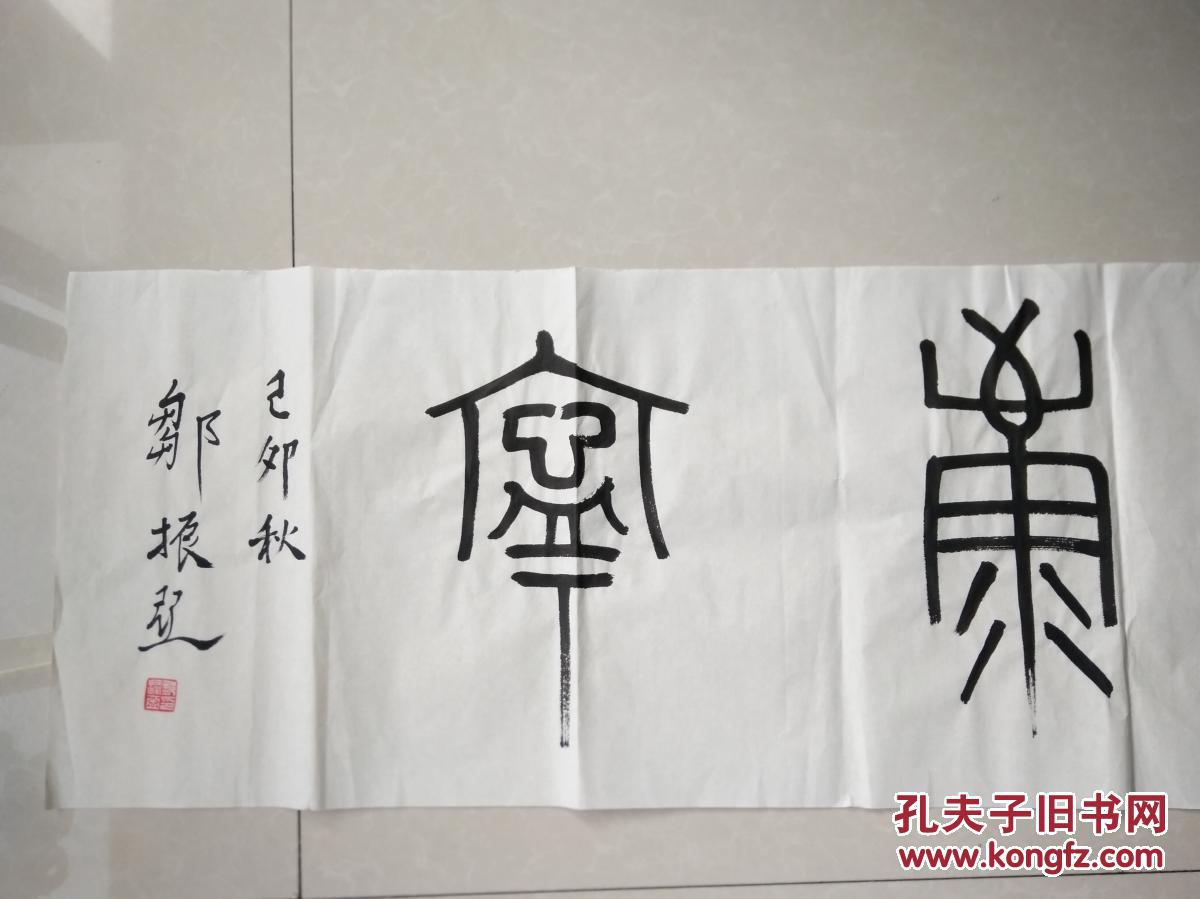 康寧
己卯秋
鄒振
孔夫子旧书网
www.kongfz.com